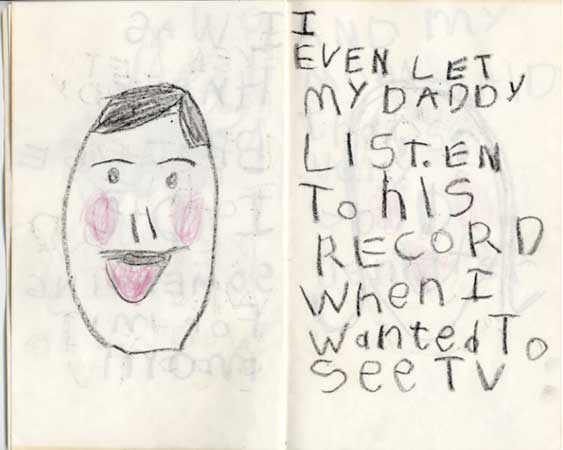 I
EVEN LET
MY DADDY
LISTEN
To hIS
RECORD
When I
wanted To
See TV